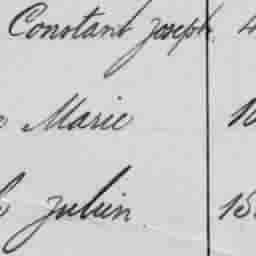 Constant Joseph 4
Marie 10
Julien 15